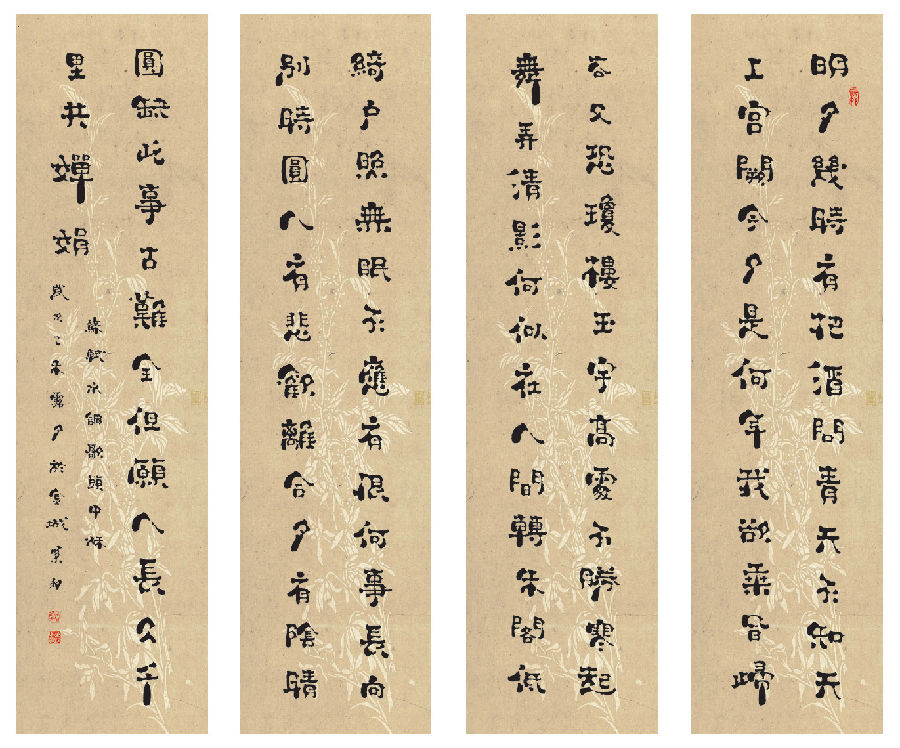 明月幾時有把酒問青天不知天
上宮闕今夕是何年我欲乘風歸
去又恐瓊樓玉宇高處不勝寒起
舞弄清影何似在人間轉朱閣低
綺戶照無眠不應有恨何事長向
別時圓人有悲歡離合月有陰晴
圓缺此事古難全但願人長久千
里共嬋娟
蘇軾水調歌頭中秋
歲乙未月於宣城